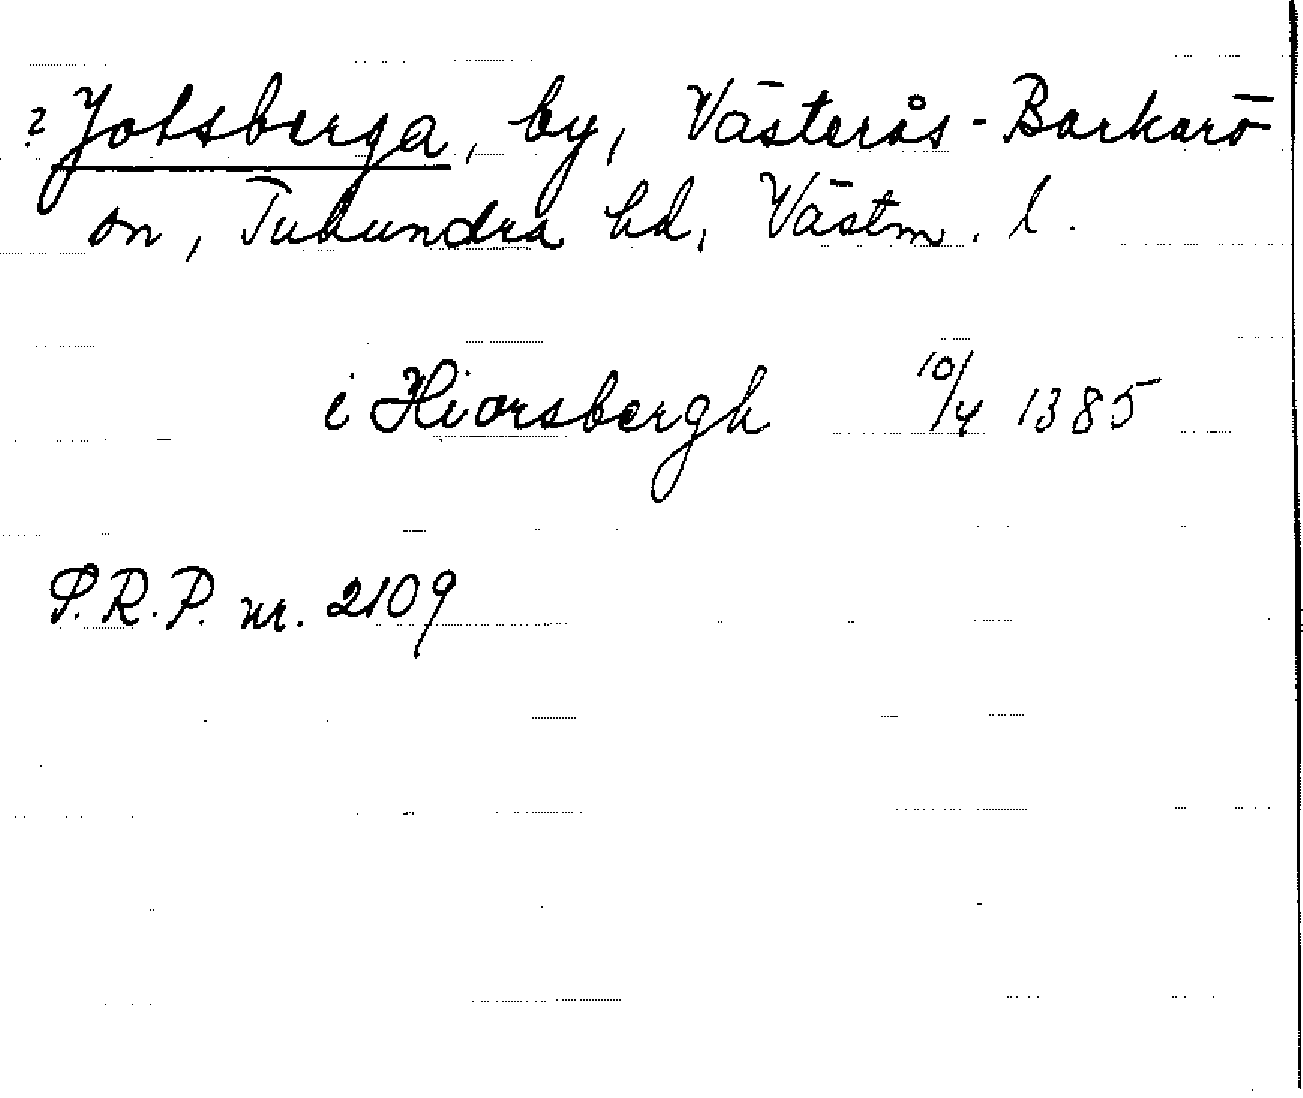 ? Jotsberga, by, Västerås-Barkarö
sn, Tuhundra hd, Västm. l.
i Hiorsbergh 10/4 1385
S.R.P. nr. 2109